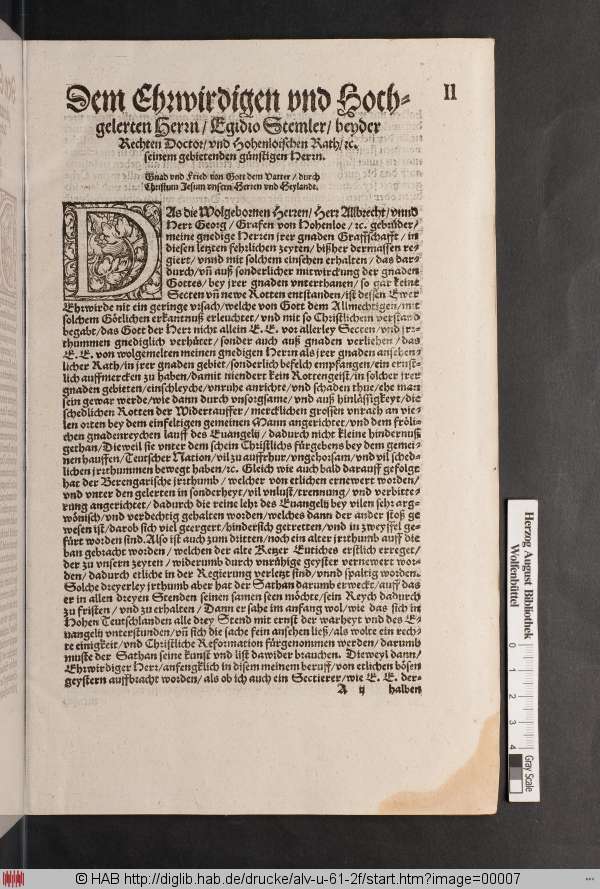 Dem Ehrwirdigen vnd Hoch- II
gelerten Herrn / Egidio Stemler / beyder
Rechten Doctor / vnd Hohenloischen Rath / ꝛc.
seinem gebietenden günstigen Herrn.
Gnad vnd Fried von Gott dem Vatter / durch
Christum Jesum vnsern Herren vnd Heylandt.
DAs die Wolgebornen Herren / Herr Albrecht / vnnd
Herr Georg / Grafen von Hohenloe / ꝛc. gebrüder /
meine gnedige Herren jrer gnaden Graffschafft / in
diesen letzten fehrlichen zeyten / bißher dermassen re-
giert / vnnd mit solchem einsehen erhalten / das dar-
durch / vn̄ auß sonderlicher mitwirckung der gnaden
Gottes / bey jrer gnaden vnterthanen / so gar keine
Secten vn̄ newe Rotten entstanden / ist dessen Ewer
Ehrwirde nit ein geringe vrsach / welche von Gott dem Allmechtigen / mit
solchem Götlichen erkantnuß erleuchtet / vnd mit so Christlichem verstand
begabt / das Gott der Herr nicht allein E. E. vor allerley Secten / vnd jrr-
thummen gnediglich verhütet / sonder auch auß gnaden verliehen / das
E. E. von wolgemelten meinen gnedigen Herrn als jrer gnaden ansehen-
licher Rath / in jrer gnaden gebiet / sonderlich befelch empfangen / ein ernst-
lich auffmercken zu haben / damit niendert kein Rottengeist / in solcher jrer
gnaden gebieten / einschleyche / vnruhe anrichte / vnd schaden thue / ehe man
sein gewar werde / wie dann durch vnsorgsame / vnd auß hinlässigkeyt / die
schedlichen Rotten der Widertauffer / mercklichen grossen vnrath an vie-
len orten bey dem einfeltigen gemeinen Mann angerichtet / vnd dem fröli-
chen gnadenreychen lauff des Euangelij / dadurch nicht kleine hindernuß
gethan / Dieweil sie vnter dem schein Christlichs fürgebens bey dem gemei-
nen hauffen / Teutscher Nation / vil zu auffrhur / vngehorsam / vnd vil sched-
lichen jrrthummen bewegt haben / ꝛc. Gleich wie auch bald darauff gefolgt
hat der Berengarische jrrthumb / welcher von etlichen ernewert worden /
vnd vnter den gelerten in sonderheyt / vil vnlust / trennung / vnd verbitte-
rung angerichtet / dadurch die reine lehr des Euangelij bey vilen sehr arg-
wönisch / vnd verdechtig gehalten worden / welches dann der ander stoß ge
wesen ist / darob sich viel geergert / hindersich getretten / vnd in zweyffel ge-
fürt worden sind. Also ist auch zum dritten / noch ein alter jrrthumb auff die
ban gebracht worden / welchen der alte Ketzer Eutiches erstlich erreget /
der zu vnsern zeyten / widerumb durch vnrühige geyster vernewert wor-
den / dadurch etliche in der Regierung verletzt sind / vnnd spaltig worden.
Solche dreyerley jrthumb aber hat der Sathan darumb erweckt / auff das
er in allen dreyen Stenden seinen samen seen möchte / sein Reych dadurch
zu fristen / vnd zu erhalten / Dann er sahe im anfang wol / wie das sich in
Hohen Teutschlanden alle drey Stend mit ernst der warheyt vnd des E-
uangelij vnterstunden / vn̄ sich die sache fein ansehen ließ / als wolte ein rech-
te einigkeit / vnd Christliche Reformation fürgenommen werden / darumb
muste der Sathan seine kunst vnd list dawider brauchen. Dieweyl dann /
Ehrwirdiger Herr / anfengklich in disem meinem beruff / von etlichen bösen
geystern auffbracht worden / als ob ich auch ein Sectierer / wie E. E. der-
A ij halben
Herzog August Bibliothek
Wolfenbüttel
0 1 2 3 4
Gray Scale
© HAB http://diglib.hab.de/drucke/alv-u-61-2f/start.htm?image=00007